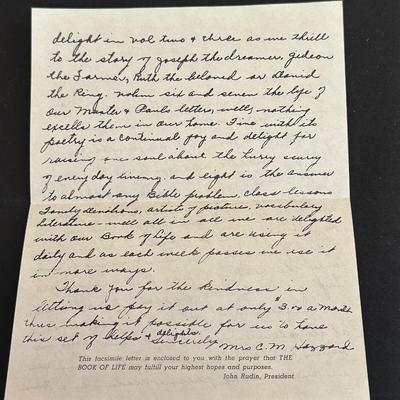 delight in vol two & three as we thrill
to the story of Joseph the dreamer, Gideon
the Farmer, Ruth the beloved or David
the King. Volm six and seven the life of
our Master & Pauls letters, well, nothing
excells them in our home. Five with its
poetry is a continual joy and delight for
raising one soul above the hurry scurry
of every day living. and eight is the answer
to almost any Bible problem, class lessons
Family devotions, artists of picture, vocabulary
Literature - well all in all we are delighted
with our Book of Life and are using it
daily and as each week passes we use it
in more ways.
Thank you for the kindness in
letting us pay it out at only $3.00 a month
thus making it possible for us to have
this set of helps & delights.
Sincerely Mrs C. M. Hazzard
This facsimile letter is enclosed to you with the prayer that THE
BOOK OF LIFE may fulfill your highest hopes and purposes.
John Rudin, President.